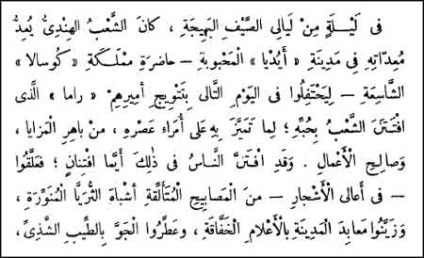 فى لَيْلَةٍ مِنْ لَيَالِى الصَّيْفِ الْبَهِيجَةِ ، كَانَ الشَّعْبُ الْهِنْدِىُّ يُعِدُّ
مُعِدَّاتِهِ فِى مَدِينَةِ « أَيُدْيا » الْمَحْبُوبَةِ – حَاضِرَةِ مَمْلَكَةِ « كُوسالا »
الشَّاسِعَةِ – لِيَحْتَفِلُوا فى الْيَوْمِ التَّالى بِتَتْوِيجِ أَمِيرِهِمْ « راما » الَّذى
افْتَتَنَ الشَّعْبُ بِحُبِّهِ ؛ لِما تَمَيَّزَ بِهِ عَلَى أُمَرَاءِ عَصْرِهِ ، مِنْ باهِرِ الْمَزايا ،
وَصالِحِ الْأَعْمالِ . وَقَدِ افْتَنَّ النَّاسُ فى ذٰلِكَ أَيَّما افْتِنانٍ ؛ فَعَلَّقُوا
– فى أَعالى الْأَشْجارِ – مِنَ الْمَصابِيحِ الْمُتَأَلِّقَةِ أَشْباهَ الثُّرَيَّا الْمُنَوِّرَةِ ،
وَزَيَّنُوا مَعابِدَ الْمَدِينَةِ بِالْأَعْلامِ الْخَفَّاقَةِ ، وَعَطَّرُوا الْجَوَّ بِالطِّيبِ الشَّذِىِّ ،